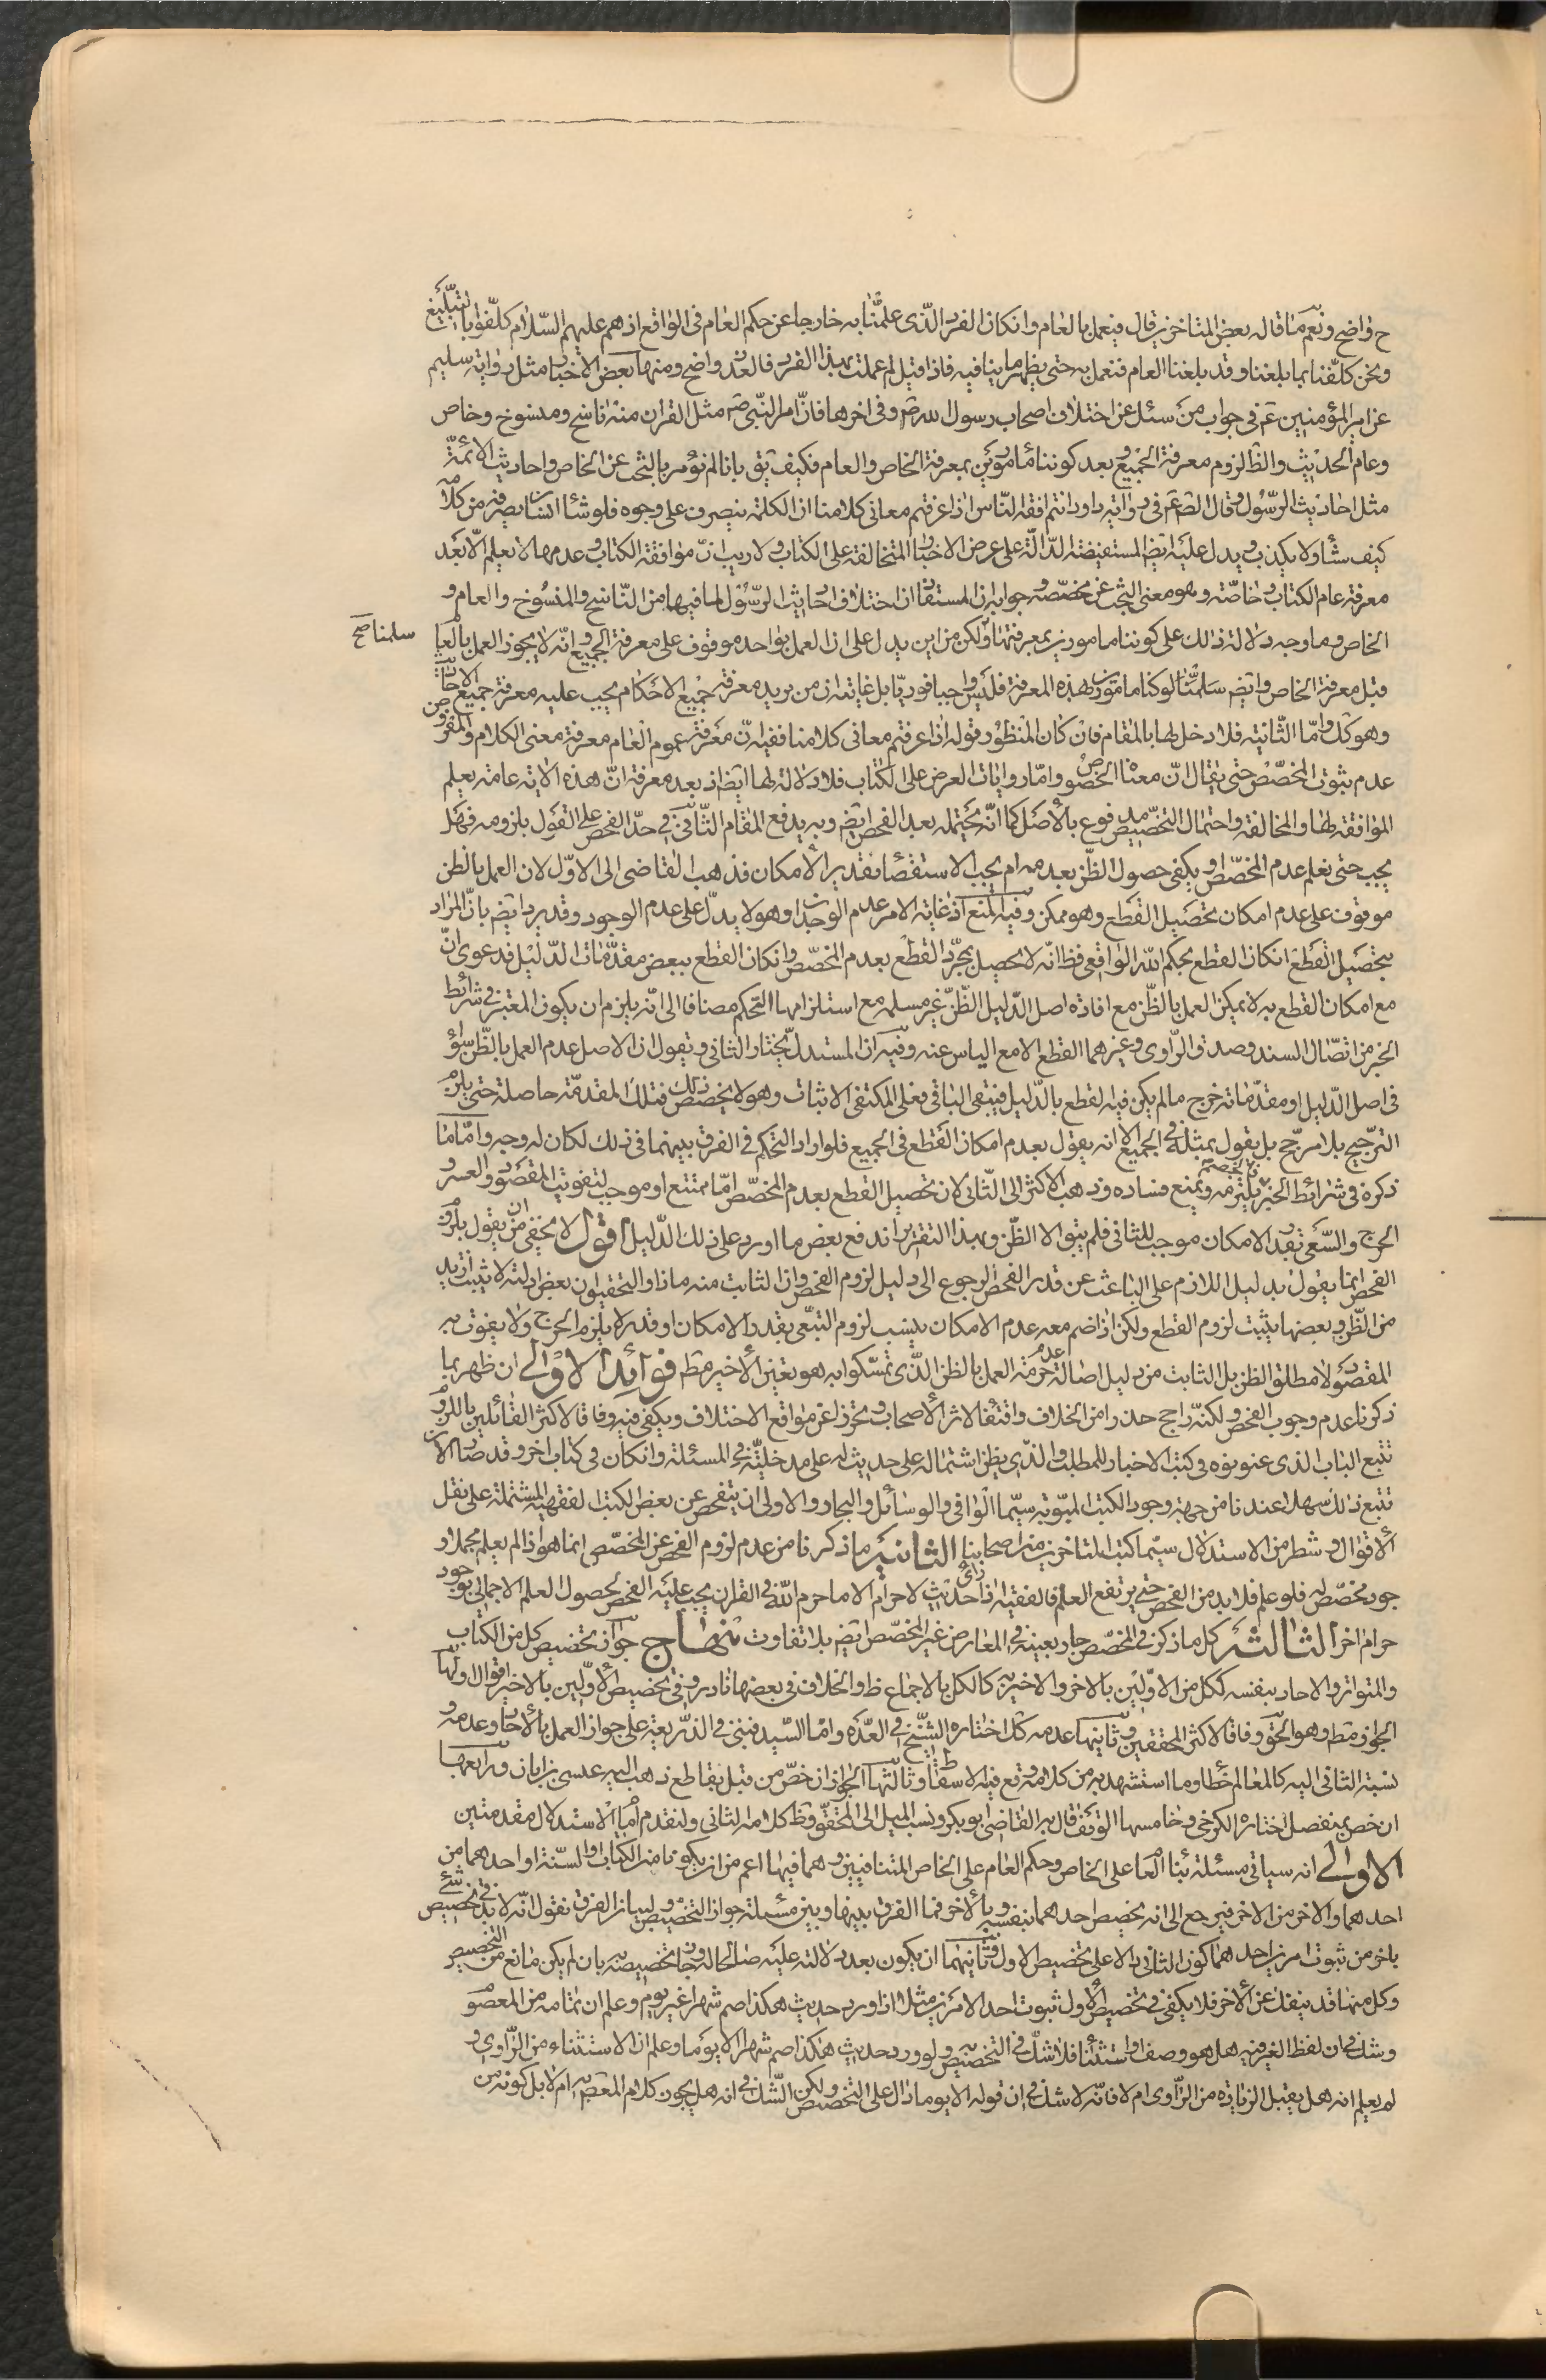 ح واضح ونعم ما قاله بعض المتاخرين قال فيعمل بالعام وان كان الفرد الذى علمنا به خارجا عن حكم العام فى الواقع اذ هم عليهم السّلام كلّفوا بالتبليغ
ونحن كلّفنا بما بلغنا وقد بلغنا العام فنعمل به حتى يظهر ما ينافيه فاذا قيل لم عملت بهذا الفرد فالعذر واضح ومنها بعض الاخبار مثل رواية سليم
عن امير المؤمنين ع فى جواب من سئل عن اختلاف اصحاب رسول الله ص وفى اخرها فانّ امر النّبى ص مثل القران منه ناسخ ومنسوخ وخاص
وعام الحديث والظ لزوم معرفة الجميع وبعد كوننا مامورين بمعرفة الخاص والعام فكيف يق بانا لم نؤمر بالبحث عن الخاص واحاديث الائمّة
مثل احاديث الرّسول وقال الص ع فى رواية داود انتم افقه النّاس اذا عرفتم معانى كلامنا ان الكلمة ينصرف على وجوه فلو شاء انسان يصرف من كلامه
كيف شاء ولا يكذب ويدل عليه ايض المستفيضة الدّالّة على عرض الاخبار المتخالفة على الكتاب ولا ريب انّ موافقة الكتاب وعدمها لا يعلم الّا بعد
معرفة عام الكتاب وخاصّه وهو معنى البحث عن مخصّصه وجوابه ان المستفاد ان اختلاف احاديث الرّسول لما فيها من النّاسخ والمنسوخ والعام و
الخاص وما وجه دلالة ذلك على كوننا مامورين بمعرفتها ولكن من اين يدل على ان العمل بواحد موقوف على معرفة الجميع وانّه لا يجوز العمل بالعام
سلمنا صح
قبل معرفة الخاص وايضم سلمنا لوكنا مامورين بهذه المعرفة فليس واجبا فوريّا بل غايته ان من يريد معرفة جميع الاحكام يجب عليه معرفة جميع
وهو كك وامّا الثّانية فلا دخل لها بالمقام فان كان المنظور قوله اذا عرفتم معانى كلامنا ففيه انّ معرفة عموم العام معرفة معنى الكلام والمفروض
عدم ثبوت المخصّص حتى يقال انّ معناه الخصوص وامّا روايات العرض على الكتاب فلا دلالة لها ايض اذ بعد معرفة انّ هذه الاية عامة يعلم
الموافقة لها والمخالفة واحتمال التخصيص مدفوع بالأصل كما انّه يحتمله بعد الفحص ايض وبه يدفع المقام الثّانى فى حدّ الفحص على القول بلزومه فهل
يجب حتى يعلم عدم المخصّص او يكفى حصول الظّن بعدمه ام يجب الاستقصاء بقدر الأمكان فذهب القاضى الى الاوّل لان العمل بالظن
موقوف على عدم امكان تحصيل القطع وهو ممكن وفيه المنع اذ غاية الامر عدم الوجدان وهو لا يدلّ على عدم الوجود وقد يرد ايض بانّ المراد
بتحصيل القطع ان كان القطع بحكم الله الواقعى فظ انّه لا يحصل بمجرّد القطع بعدم المخصّص وان كان القطع ببعض مقدّمات الدّليل فدعوى انّ
مع امكان القطع به لا يمكن العمل بالظّن مع افادة اصل الدّليل الظّنّ غير مسلمه مع استلزامها التحكم مضافا الى انّه يلزم ان يكون المعتبر فى شرائط
الخبر من اتصّال السند وصدق الرّاوى وغيرهما القطع الا مع الياس عنه وفيه ان المستدلّ يختار الثانى ويقول ان الاصل عدم العمل بالظّن سواء
فى اصل الدّليل او مقدّماته خرج ما لم يكن فيه القطع بالدّليل فيبقى الباقى فعلى المكتفى الاثبات وهو لا يخصص ذلك فتلك المقدمّة حاصلة حتى يلزم
الترجيح بلا مرجّح بل يقول بمثله فى الجميع الا انه يقول بعدم امكان القطع فى الجميع فلو اراد التحكم فى الفرق بينهما فى ذلك لكان له وجه وامّا ما
ذكره فى شرائط الخبر يلتزمه ويمنع فساده وذهب الاكثر الى الثّانى لان تحصيل القطع بعدم المخصّص امّا ممتنع او موجب لتفويت المقصود والعسر و
الحرج والسّعى بقدر الامكان موجب للثانى فلم يبق الا الظّن وبهذا التقرير اندفع بعض ما اورد على ذلك الدّليل اقول لا يخفى ان من يقول بلزوم
الفحص انما يقول بدليل اللازم على الباحث عن قدر الفحص الرجوع الى دليل لزوم الفحص وان الثابت منه ماذا والتحقيق ان بعض ادلته لا يثبت ازيد
من الظّن وبعضها يثبت لزوم القطع ولكن اذا ضم معه عدم الامكان يثبت لزوم التتبّع بقدر الامكان او قدر لا يلزم الحرج ولا يفوت به
المقصود لا مطلق الظن بل الثابت من دليل اصالة عدم حرمة العمل بالظن الذى تمسّكوا به هو تعين الأخير مط فوائد الاولى ان ظهر بما
ذكرنا عدم وجوب الفحص ولكنّه راجح حذرا من الخلاف واقتفاء لاثر الأصحاب وتحرزا عن مواقع الاختلاف ويكفى فيه وفاقا لاكثر القائلين باللزوم
تتبع الباب الذى عنونوه فى كتب الاخبار للمطلب والذى يظن اشتماله على حديث له على مدخليّة فى المسئلة وان كان فى كتاب اخر وقد صار الآن
تتبع ذلك سهلا عندنا من جهة وجود الكتب المبوّبة سيّما الوافى والوسائل والبحار والاولى ان يتفحص عن بعض الكتب الفقهيّة المشتملة على نقل
الأقوال وشطر من الاستدلال سيّما كتب المتاخرين من اصحابنا الثانية ما ذكرنا من عدم لزوم الفحص عن المخصّص انما هو اذا لم يعلم مجملا و
جود مخصّص له فلو علم فلا بد من الفحص حتى يرتفع العلم فالفقيه اذا رأى حديث لا حرام الا ما حرم الله فى القران يجب عليه الفحص لحصول العلم الاجمالى بوجود
حرام اخر الثالثة كل ما ذكر فى المخصّص جار بعينه فى المعارض غير المخصّص ايض بلا تفاوت منهاج جواز تخصيص كل من الكتاب
والمتواتر والاحاد بنفسه ككل من الاوّلين بالاخر والاخير به كالكل بالاجماع ظ والخلاف فى بعضها نادر وفى تخصيص الأوّلين بالاخير اقوال اولها
الجواز مط وهو الحق وفاقا لاكثر المحققين وثانيها عدمه كك اختاره الشيخ فى العدّه وامّا السّيد فبنى فى الذّريعة على جواز العمل بالأحاد وعدمه و
نسبة الثانى اليه كالمعالم خطا وما استشهد به من كلامه وقع فيه لاسقاط وثالثها الجواز ان خصّ من قبل بقاطع ذهب اليه عيسى بن ابان ورابعها
ان خص بمنفصل اختاره الكرخى وخامسها التوقف قال به القاضى ابو بكر ونسب الميل الى المحقق وظ كلامه الثانى ولنقدم امام الاستدلال مقدمتين
الاولى انه سياتى مسئلة بناء العام على الخاص وحكم العام على الخاص المتنافيين وهما فيها اعم من ان يكونا من الكتاب او السّنة او احدهما من
احدهما والاخر من الاخر فيرجع الى انه يخصيص احدهما بنفسه وبالأخر فما الفرق بينها وبين مسئلة جواز التخصيص ولبيان الفرق نقول انّه لا بد فى تخصيص شئ
باخر من ثبوت امرين احدهما كون الثانى دالا على تخصيص الاول وثانيهما ان يكون بعد دلالته عليه صالحا له وجاز تخصيصه به بان لم يكن مانع من التخصيص
وكل منهما قد ينفك عن الأخر فلا يكفى فى تخصيص الأول ثبوت احد الامرين مثلا اذا ورد حديث هكذا صم شهرا غير يوم وعلم ان تمامه من المعصوم
وشك فى ان لفظ الغير فيه هل هو وصف او استثناء فلا شكّ فى التخصيص به ولو ورد حديث هكذا صم شهرا الا يوما وعلم ان الاستثناء من الرّاوى و
لم يعلم انه هل يقبل الزيادة من الرّاوى ام لا فانّه لا شك فى ان قوله الا يوما دال على التخصيص ولكن الشّك فى انه هل يجوز كلام المعصوم به ام لا بل كونه من